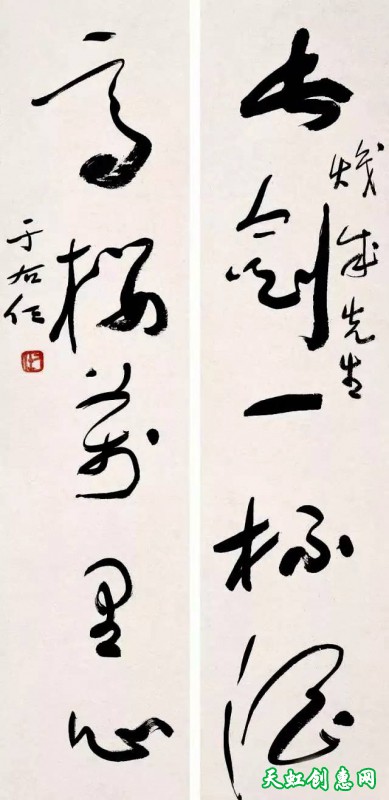 长剑一杯酒
成先生
高楼万里心
于右任
天虹创惠网